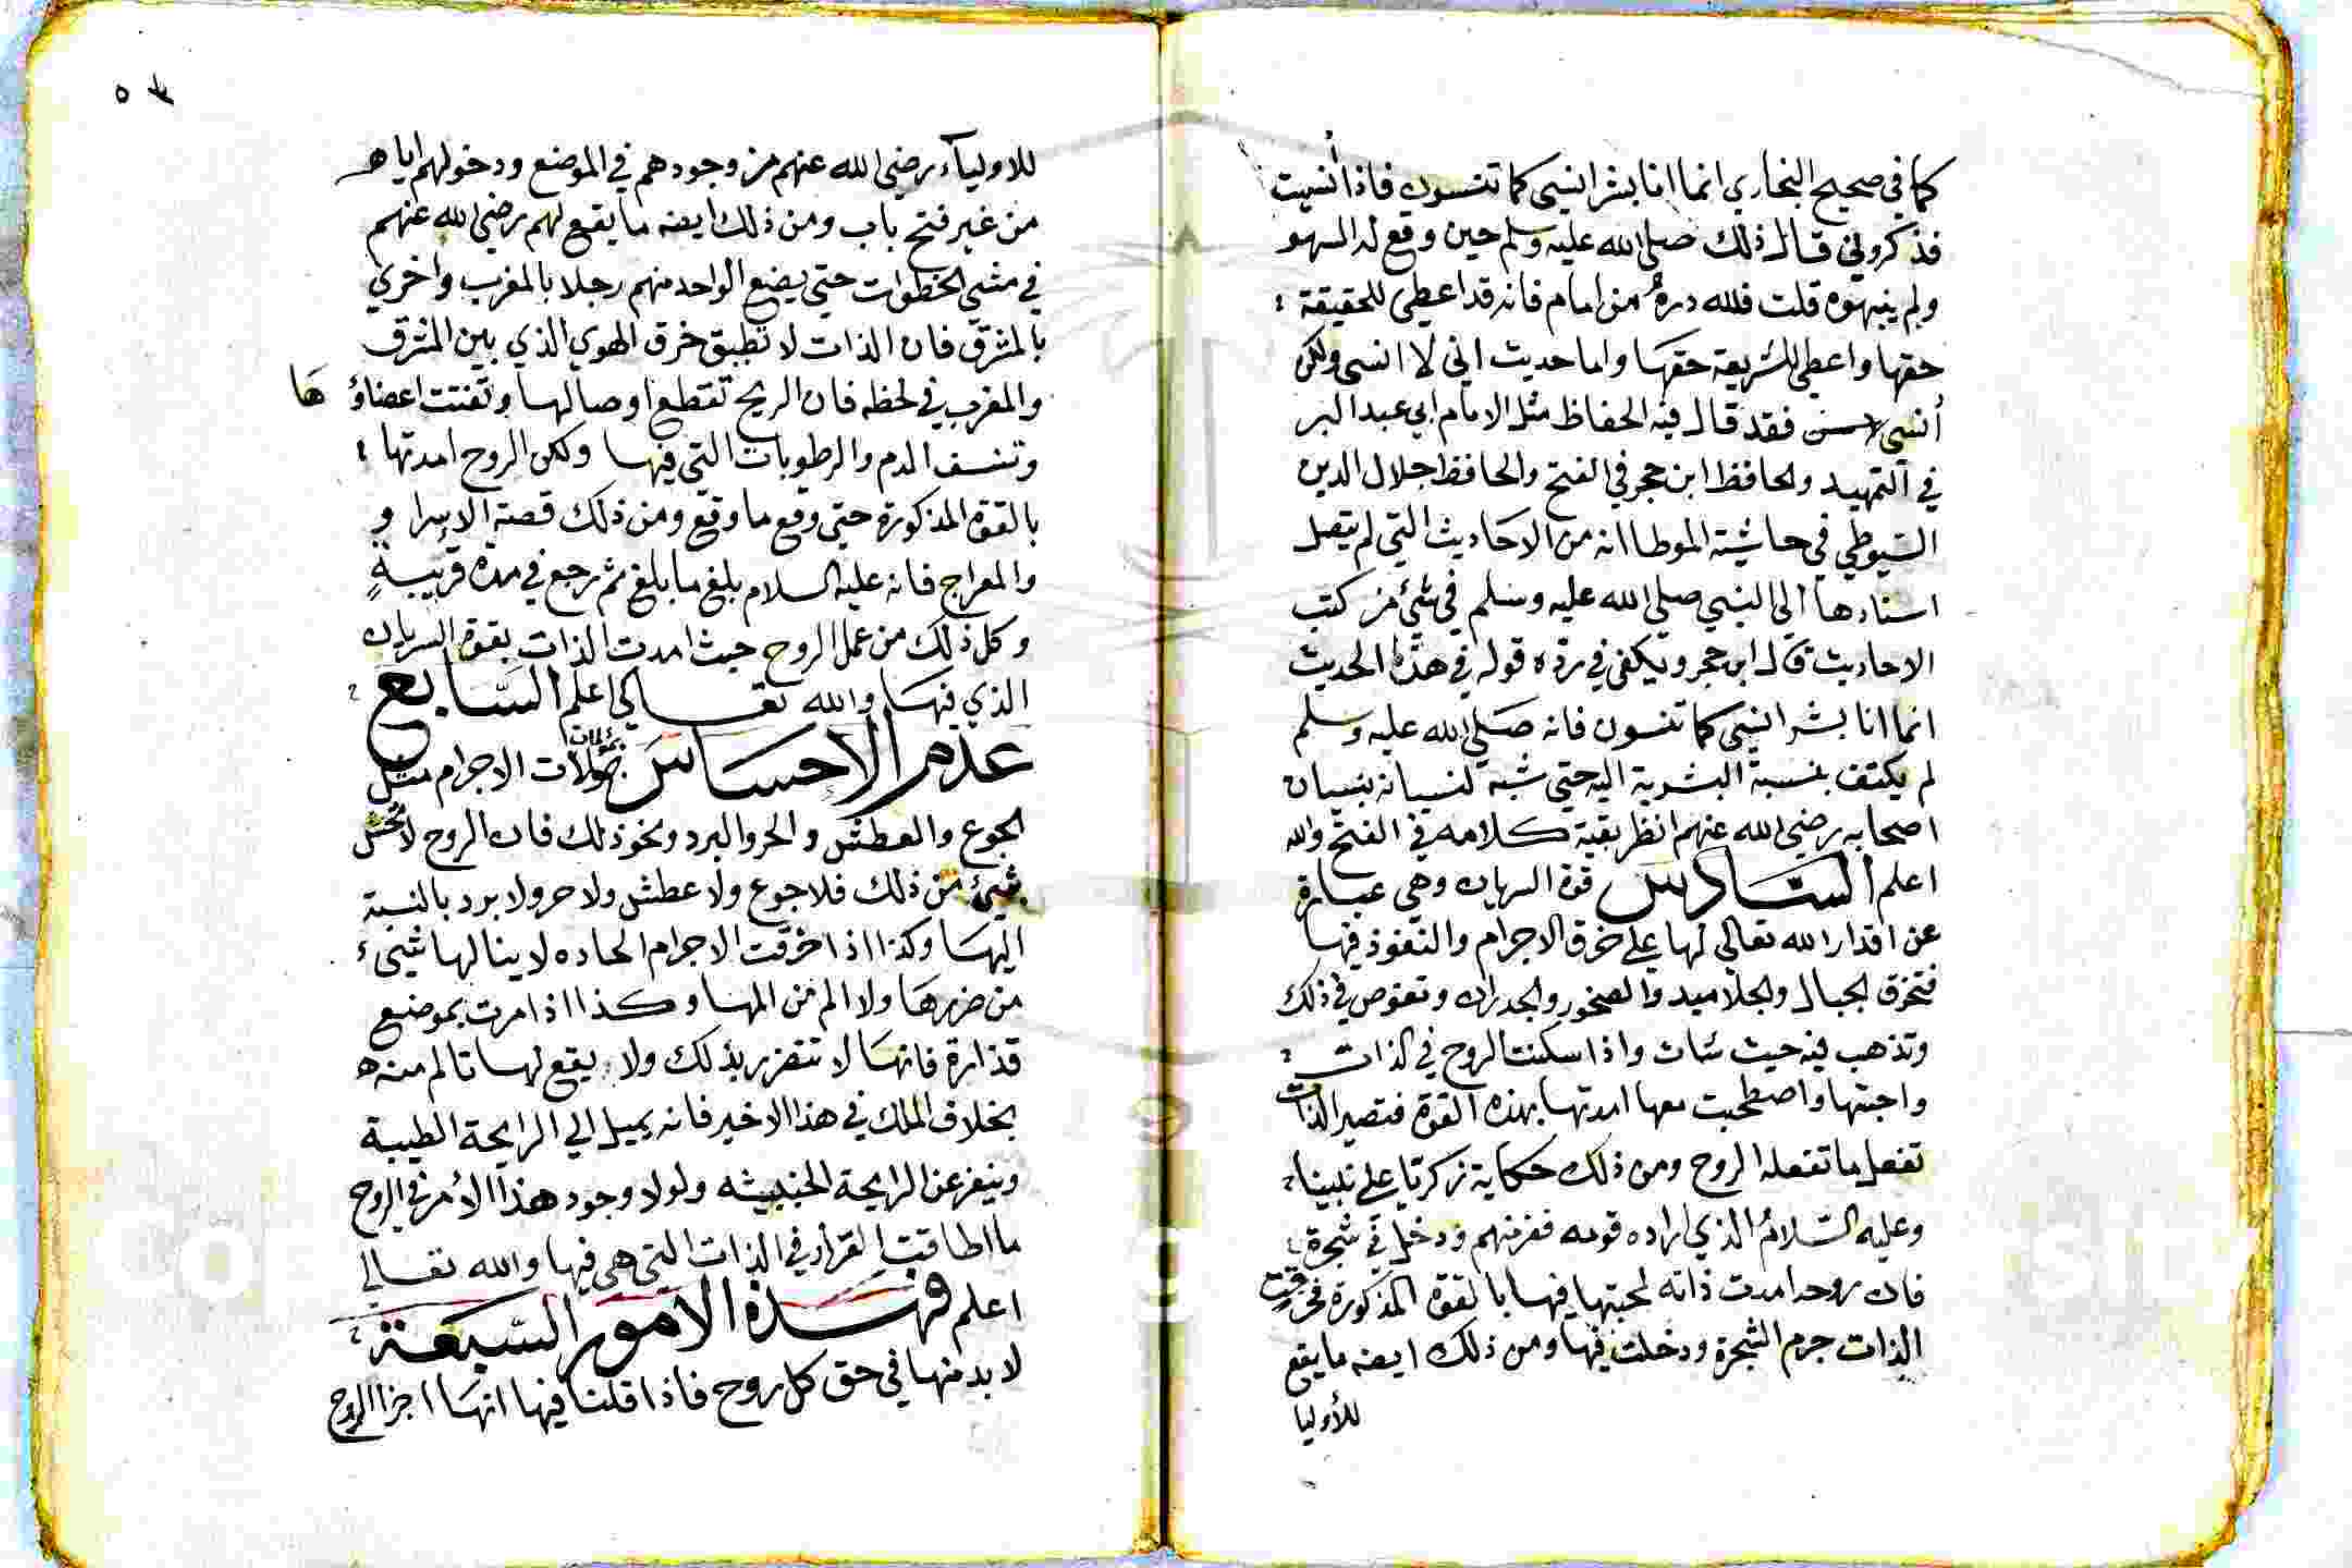 كما في صحيح البخاري انما انا بشر انسى كما تنسون فاذا أنسيت
فذكروني قال ذلك صلى الله عليه وسلم حين وقع له السهو
ولم ينبهوه قلت فلله دره من امام فانه قد اعطى للحقيقة
حقها واعطى للشريعة حقها واما حديث اني لا انسى ولكن
أنسى لاسن فقد قال فيه الحفاظ مثل الامام ابي عبد البر
في التمهيد والحافظ ابن حجر في الفتح والحافظ جلال الدين
السيوطي في حاشية الموطا انه من الاحاديث التي لم يتصل
اسنادها الى النبي صلى الله عليه وسلم في شئ من كتب
الاحاديث قال ابن حجر ويكفي في رده قوله في هذا الحديث
انما انا بشر انسى كما تنسون فانه صلى الله عليه وسلم
لم يكتف بنسبة البشرية اليه حتى شبه نسيانه بنسيان
اصحابه رضي الله عنهم انظر بقية كلامه في الفتح والله
اعلم السادس قوة السريان وهي عبارة
عن اقدار الله تعالى لها على خرق الاجرام والنفوذ فيها
فتخرق الجبال والجلاميد والصخور والجدران وتغوص في ذلك
وتذهب فيه حيث شات واذا سكنت الروح في الذات
واحبتها واصطحبت معها امدتها بهذه القوة فتصير الذات
تفعل ما تفعله الروح ومن ذلك حكاية زكريا على نبينا
وعليه السلام الذي اراده قومه ففر منهم ودخل في شجرة
فان روحه امدت ذاته لمحبتها فيها بالقوة المذكورة فخرقت
الذات جرم الشجرة ودخلت فيها ومن ذلك ايضه ما يقع
للأوليا
٥٣
للاولياء رضي الله عنهم من وجودهم في الموضع ودخولهم اياه
من غير فتح باب ومن ذلك ايضه ما يقع لهم رضي الله عنهم
في مشي الخطوات حتى يضع الواحد منهم رجلا بالمغرب واخري
بالمشرق فان الذات لا تطيق خرق الهوي الذي بين المشرق
والمغرب في لحظه فان الريح تقتطع اوصالها وتفتت اعضاؤ ها
وتنشف الدم والرطوبات التي فيها ولكن الروح امدتها
بالقوة المذكورة حتى وقع ما وقع ومن ذلك قصة الاسرا و
والمعراج فانه عليه السلام بلغ ما بلغ ثم رجع في مدة قريبةٍ
وكل ذلك من عمل الروح حيث امدت الذات بقوة السريان
الذي فيها والله تعالى اعلم السابع
عدم الاحساس بمؤلمات الاجرام مثل
الجوع والعطش والحر والبرد ونحو ذلك فان الروح لا تحس
بشيئ من ذلك فلا جوع ولا عطش ولا حر ولا برد بالنسبة
اليها وكذا اذا خرقت الاجرام الحاده لا ينالها شيئ
من ضررها ولا الم من المها وكذا اذا مرت بموضع
قذارة فانها لا تتضرر بذلك ولا يقع لها تالم منه
بخلاف الملك في هذا الاخير فانه يميل الي الرايحة الطيبة
وينفر عن الرايحة الخبيثه ولولا وجود هذا الأمر في الروح
ما اطاقت القرار في الذات التي هي فيها والله تعالى
اعلم فهذه الامور السبعة
لا بد منها في حق كل روح فاذا قلنا فيها انها اجزا الروح